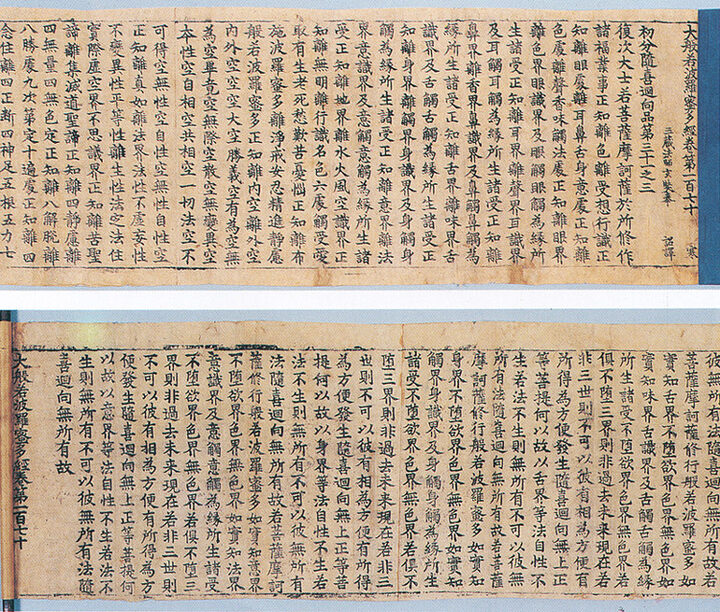 大般若波羅蜜多經卷第一百七十 寒
三藏法師玄奘奉 詔譯
初分隨喜迴向品第三十一之三
復次大士若菩薩摩訶薩於所修作
諸福業事正知離色離受想行識正
知離眼處離耳鼻舌身意處正知離
色處離聲香味觸法處正知離眼界
離色界眼識界及眼觸眼觸為緣所
生諸受正知離耳界離聲界耳識界
及耳觸耳觸為緣所生諸受正知離
鼻界離香界鼻識界及鼻觸鼻觸為
緣所生諸受正知離舌界離味界舌
識界及舌觸舌觸為緣所生諸受正
知離身界離觸界身識界及身觸身
觸為緣所生諸受正知離意界離法
界意識界及意觸意觸為緣所生諸
受正知離地界離水火風空識界正
知離無明離行識名色六處觸受愛
取有生老死愁歎苦憂惱正知離布
施波羅蜜多離淨戒安忍精進靜慮
般若波羅蜜多正知離內空離外空
內外空空空大空勝義空有為空無
為空畢竟空無際空散空無變異空
本性空自相空共相空一切法空不
可得空無性空自性空無性自性空
正知離真如離法界法性不虛妄性
不變異性平等性離生性法定法住
實際虛空界不思議界正知離苦聖
諦離集滅道聖諦正知離四靜慮離
四無量四無色定正知離八解脫離
八勝處九次第定十遍處正知離四
念住離四正斷四神足五根五力七
彼無所有法隨喜迴向無所有故若
菩薩摩訶薩修行般若波羅蜜多如
實知舌界不墮欲界色界無色界如
實知味界舌識界及舌觸舌觸為緣
所生諸受不墮欲界色界無色界若
俱不墮三界則非過去未來現在若
非三世則不可以彼有相為方便有
所得為方便發生隨喜迴向無上正
等菩提何以故以舌界等法自性不
生若法不生則無所有不可以彼無
所有法隨喜迴向無所有故若菩薩
摩訶薩修行般若波羅蜜多如實知
身界不墮欲界色界無色界如實知
觸界身識界及身觸身觸為緣所生
諸受不墮欲界色界無色界若俱不
墮三界則非過去未來現在若非三
世則不可以彼有相為方便有所得
為方便發生隨喜迴向無上正等菩
提何以故以身界等法自性不生若
法不生則無所有不可以彼無所有
法隨喜迴向無所有故若菩薩摩訶
薩修行般若波羅蜜多如實知意界
不墮欲界色界無色界如實知法界
意識界及意觸意觸為緣所生諸受
不墮欲界色界無色界若俱不墮三
界則非過去未來現在若非三世則
不可以彼有相為方便有所得為方
便發生隨喜迴向無上正等菩提何
以故以意界等法自性不生若法不
生則無所有不可以彼無所有法隨
喜迴向無所有故
大般若波羅蜜多經卷第一百七十